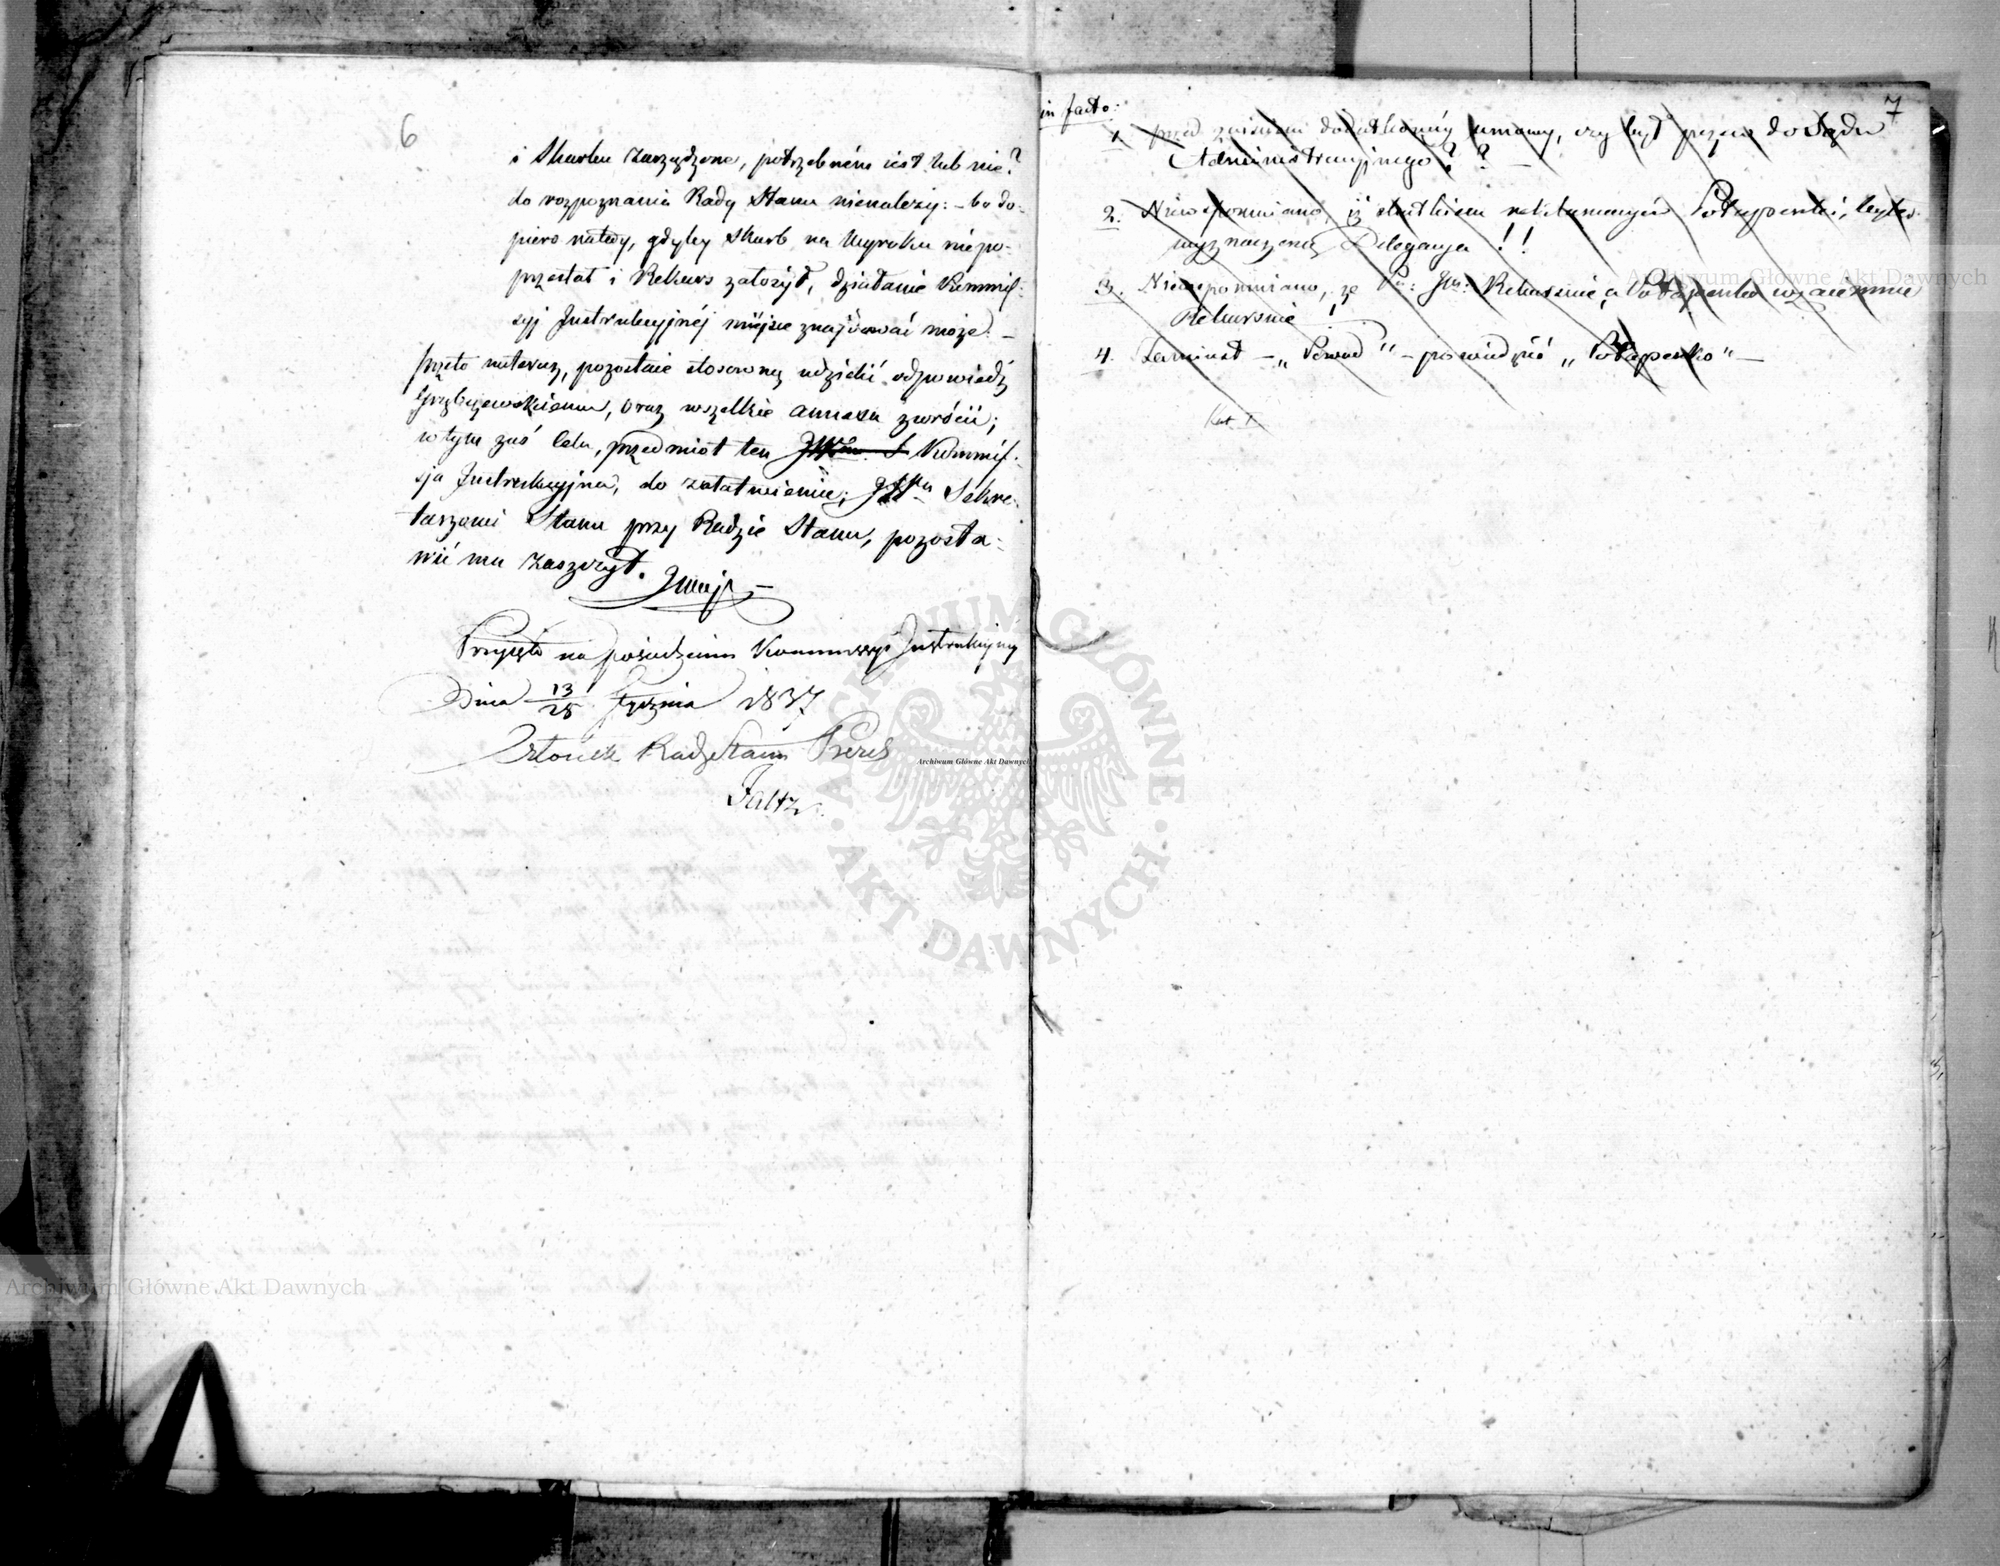 6
i Skarbu zarządzone, potrzebném iest lub nie?
do rozpoznania Rady Stanu nienależy: - bo do-
piero natedy, gdyby Skarb na Wyroku niepo-
przestał i Rekurs założył, działanie Kommis-
syi Instrukcyjnéj miejsce znajdować może. -
przeto nateraz, pozostaie stosowną udzielić odpowiedź
Grzybowskiemu, oraz wszelkie annexa zwrócić;
w tym zaś celu, przedmiot ten Kommis-
sja Instrukcyjna, do załatwienia, JWu Sekre-
tarzowi Stanu przy Radzie Stanu, pozosta-
wić ma zaszczyt.
Przyjęto na posiedzeniu Kommissyi Instrukcyjnéj
Dnia 13/25 Stycznia 1837
Członek Rady Stanu Prezes
Faltz
7
in facto:
1. przed zawarciem dodatkowéj umowy, czy był pozew do Sądu
Administracyjnego? ?
2. Niewspomniano, iż skutkiem reklamacyi Potapenki, była
wyznaczoną Delegacya !!
3. Niewspomniano, że Rekursie a Potapenko wzaiemnie
Rekursie !
4. Zamiast - „Powod" - powiedzieć „Potapenko" -
Archiwum Główne Akt Dawnych
Archiwum Główne Akt Dawnych
Archiwum Główne Akt Dawnych
ARCHIWUM GŁÓWNE · AKT DAWNYCH ·